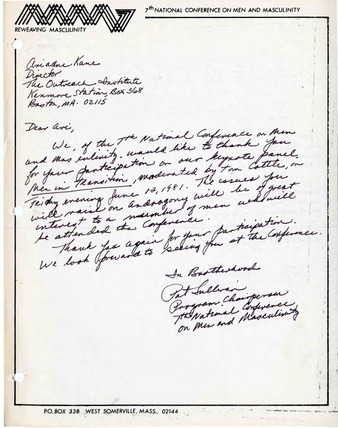 7th NATIONAL CONFERENCE ON MEN AND MASCULINITY
REWEAVING MASCULINITY
Ariadne Kane
Director
The Outreach Institute
Kenmore Station, Box 368
Boston, MA. 02115
Dear Ari,
We, of the 7th National Conference on Men
and Masculinity would like to thank you
for your participation on our keynote panel,
Men in Transition, moderated by Tom Cottle, on
Friday evening June 12, 1981. The issues you
will raise on Androgony will be of great
interest to a number of men who will
be attended the Conference.
Thank you again for your participation.
We look forward to seeing you at the Conference.
In Brotherhood
Pat Sullivan
Program Chairperson
7th National Conference
on Men and Masculinity
P.O. BOX 338 WEST SOMERVILLE, MASS., 02144